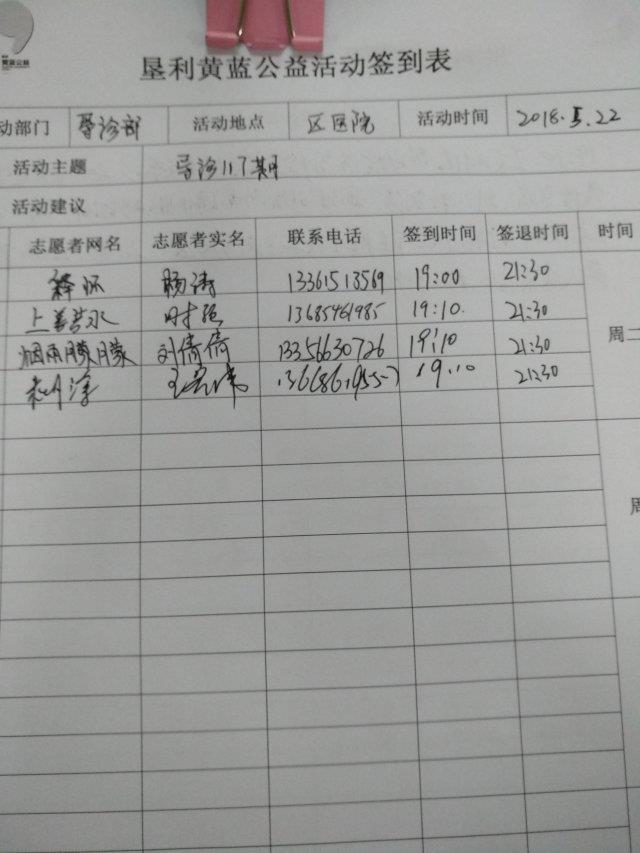 黄蓝公益
垦利黄蓝公益活动签到表
动部门 导诊部 活动地点 区医院 活动时间 2018.5.22
活动主题 导诊117期
活动建议
志愿者网名 志愿者实名 联系电话 签到时间 签退时间 时间
释怀 杨涛 13361513569 19:00 21:30
上善若水 时强 13685461985 19:10 21:30
周二
烟雨朦朦 刘倩倩 13356630726 19:10 21:30
19:10 21:30
周